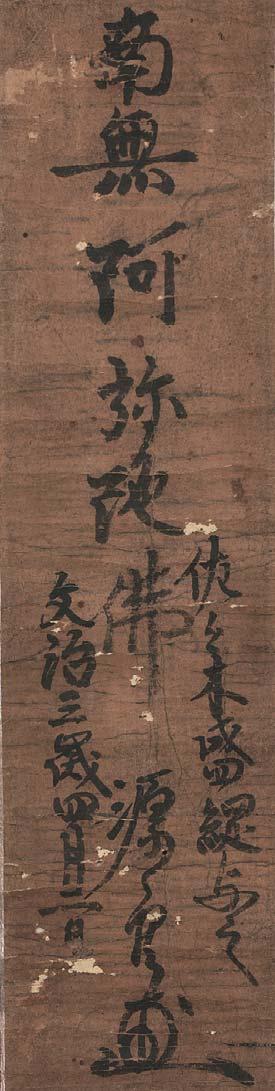 佐々木盛綱与之
南無阿弥陀佛
源空
文治三歳四月二日